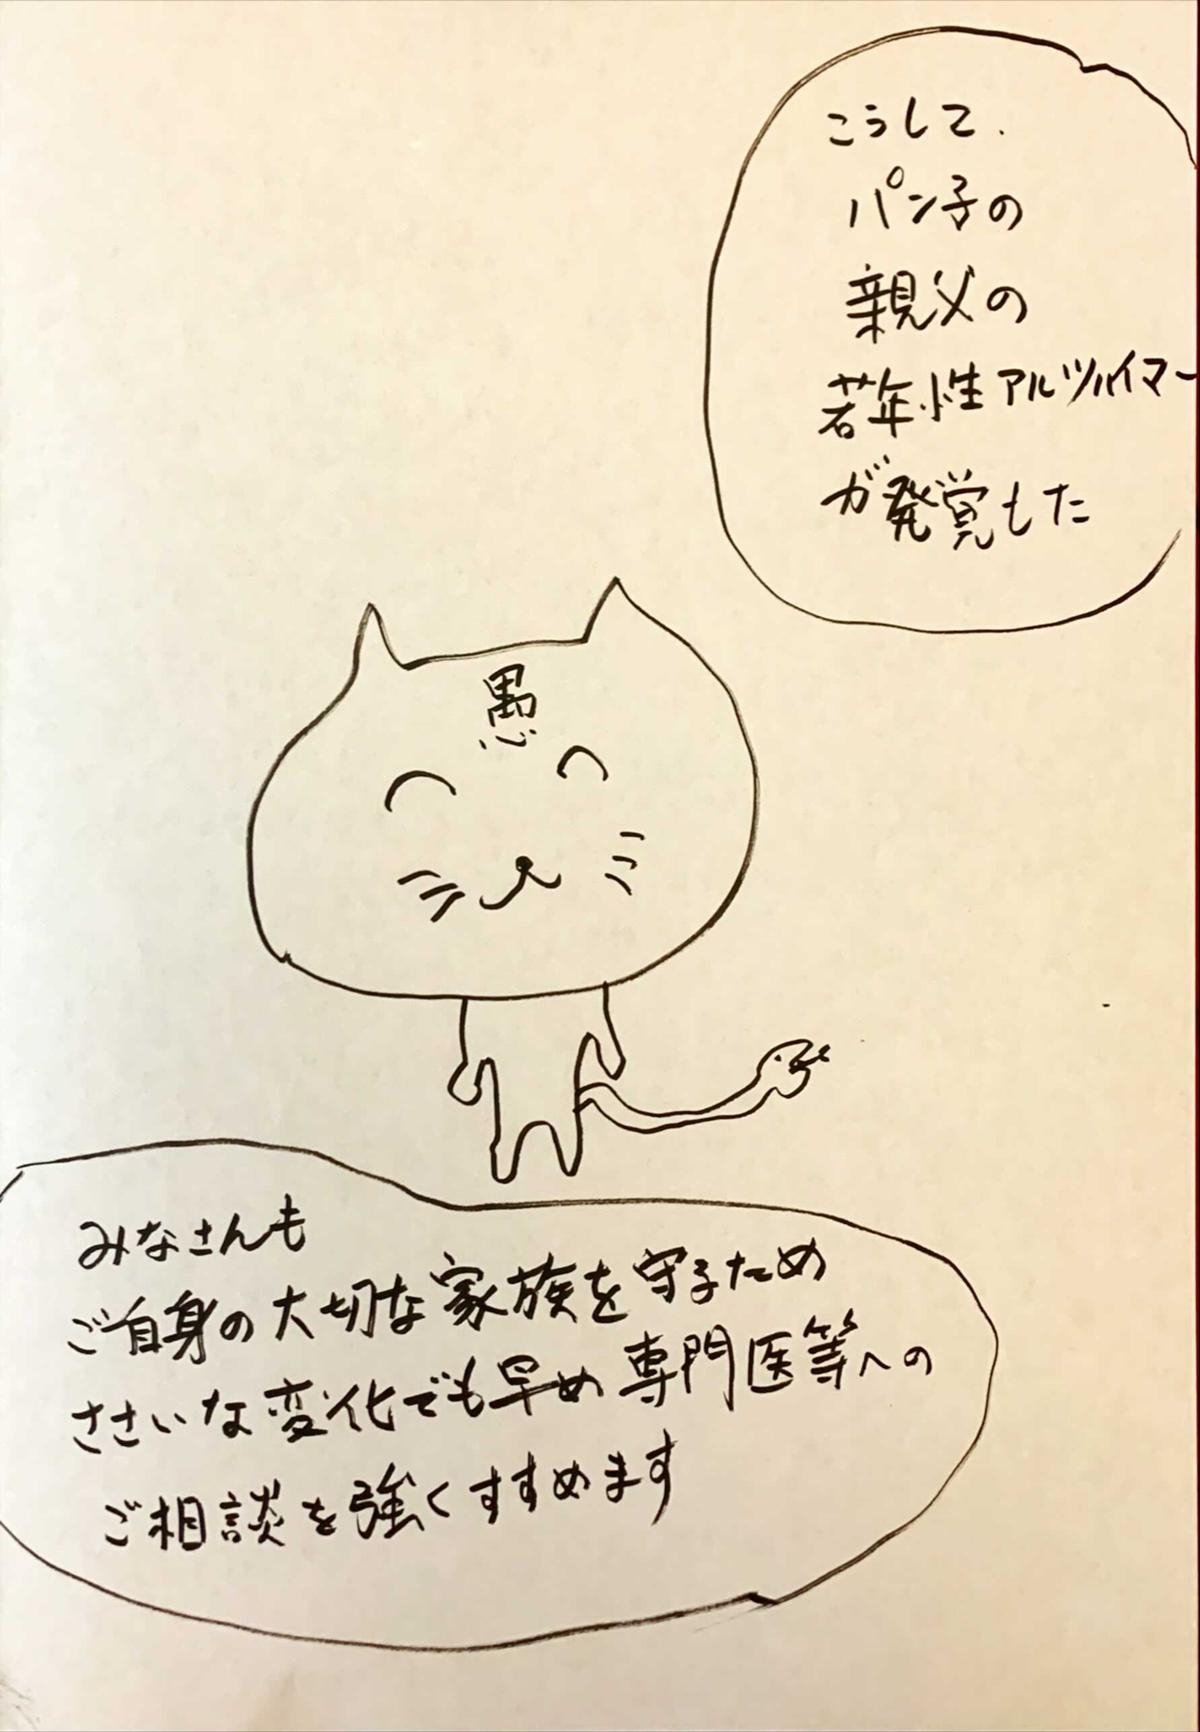 こうして、
パン子の
親父の
若年性アルツハイマー
が発覚した
愚
みなさんも
ご自身の大切な家族を守るため
ささいな変化でも早め専門医等への
ご相談を強くすすめます